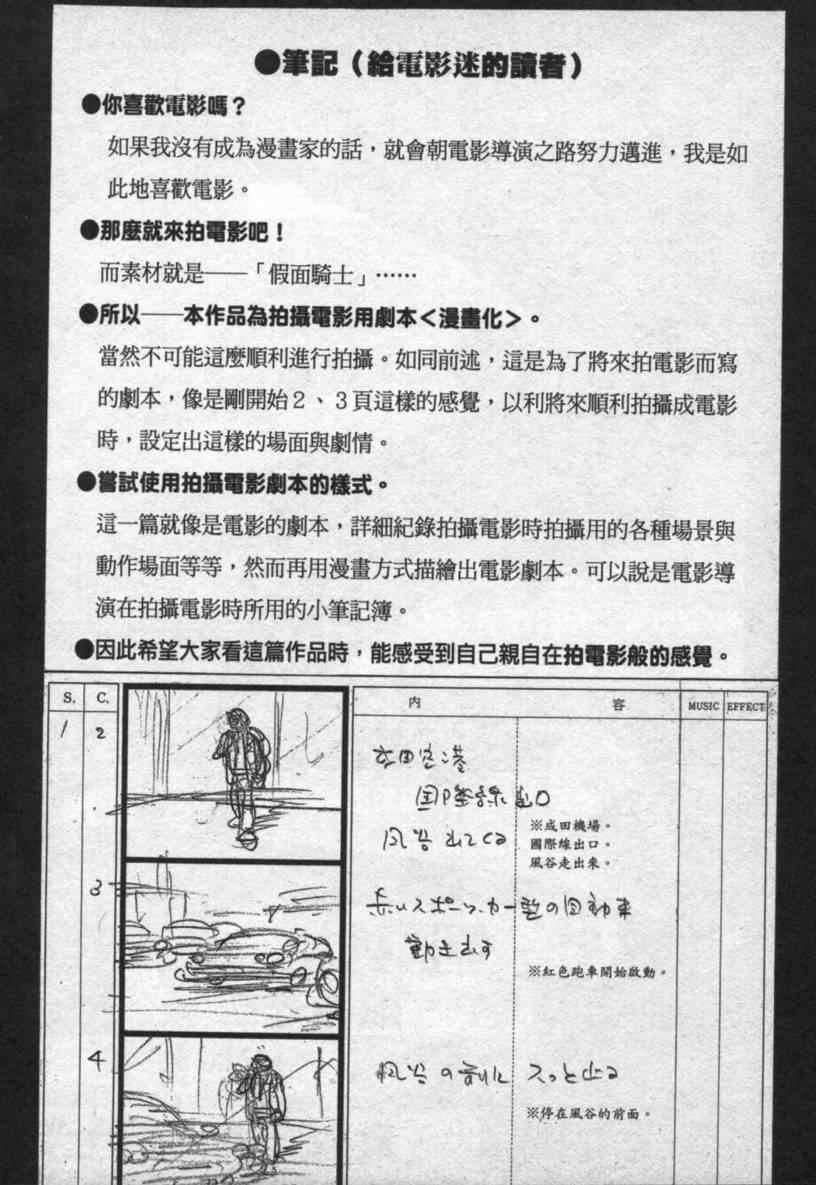 ●筆記（給電影迷的讀者）
●你喜歡電影嗎？
如果我沒有成為漫畫家的話，就會朝電影導演之路努力邁進，我是如
此地喜歡電影。
●那麼就來拍電影吧！
而素材就是──「假面騎士」……
●所以──本作品為拍攝電影用劇本＜漫畫化＞。
當然不可能這麼順利進行拍攝。如同前述，這是為了將來拍電影而寫
的劇本，像是剛開始２、３頁這樣的感覺，以利將來順利拍攝成電影
時，設定出這樣的場面與劇情。
●嘗試使用拍攝電影劇本的樣式。
這一篇就像是電影的劇本，詳細紀錄拍攝電影時拍攝用的各種場景與
動作場面等等，然而再用漫畫方式描繪出電影劇本。可以說是電影導
演在拍攝電影時所用的小筆記簿。
●因此希望大家看這篇作品時，能感受到自己親自在拍電影般的感覺。
S. C. 內 容 MUSIC EFFECT
1 2
成田空港
国際線出口
風谷 出てくる
※成田機場。
國際線出口。
風谷走出來。
3
赤いスポーツ・カー型の自動車
動き出す
※紅色跑車開始啟動。
4
風谷の前に スッと止る
※停在風谷的前面。